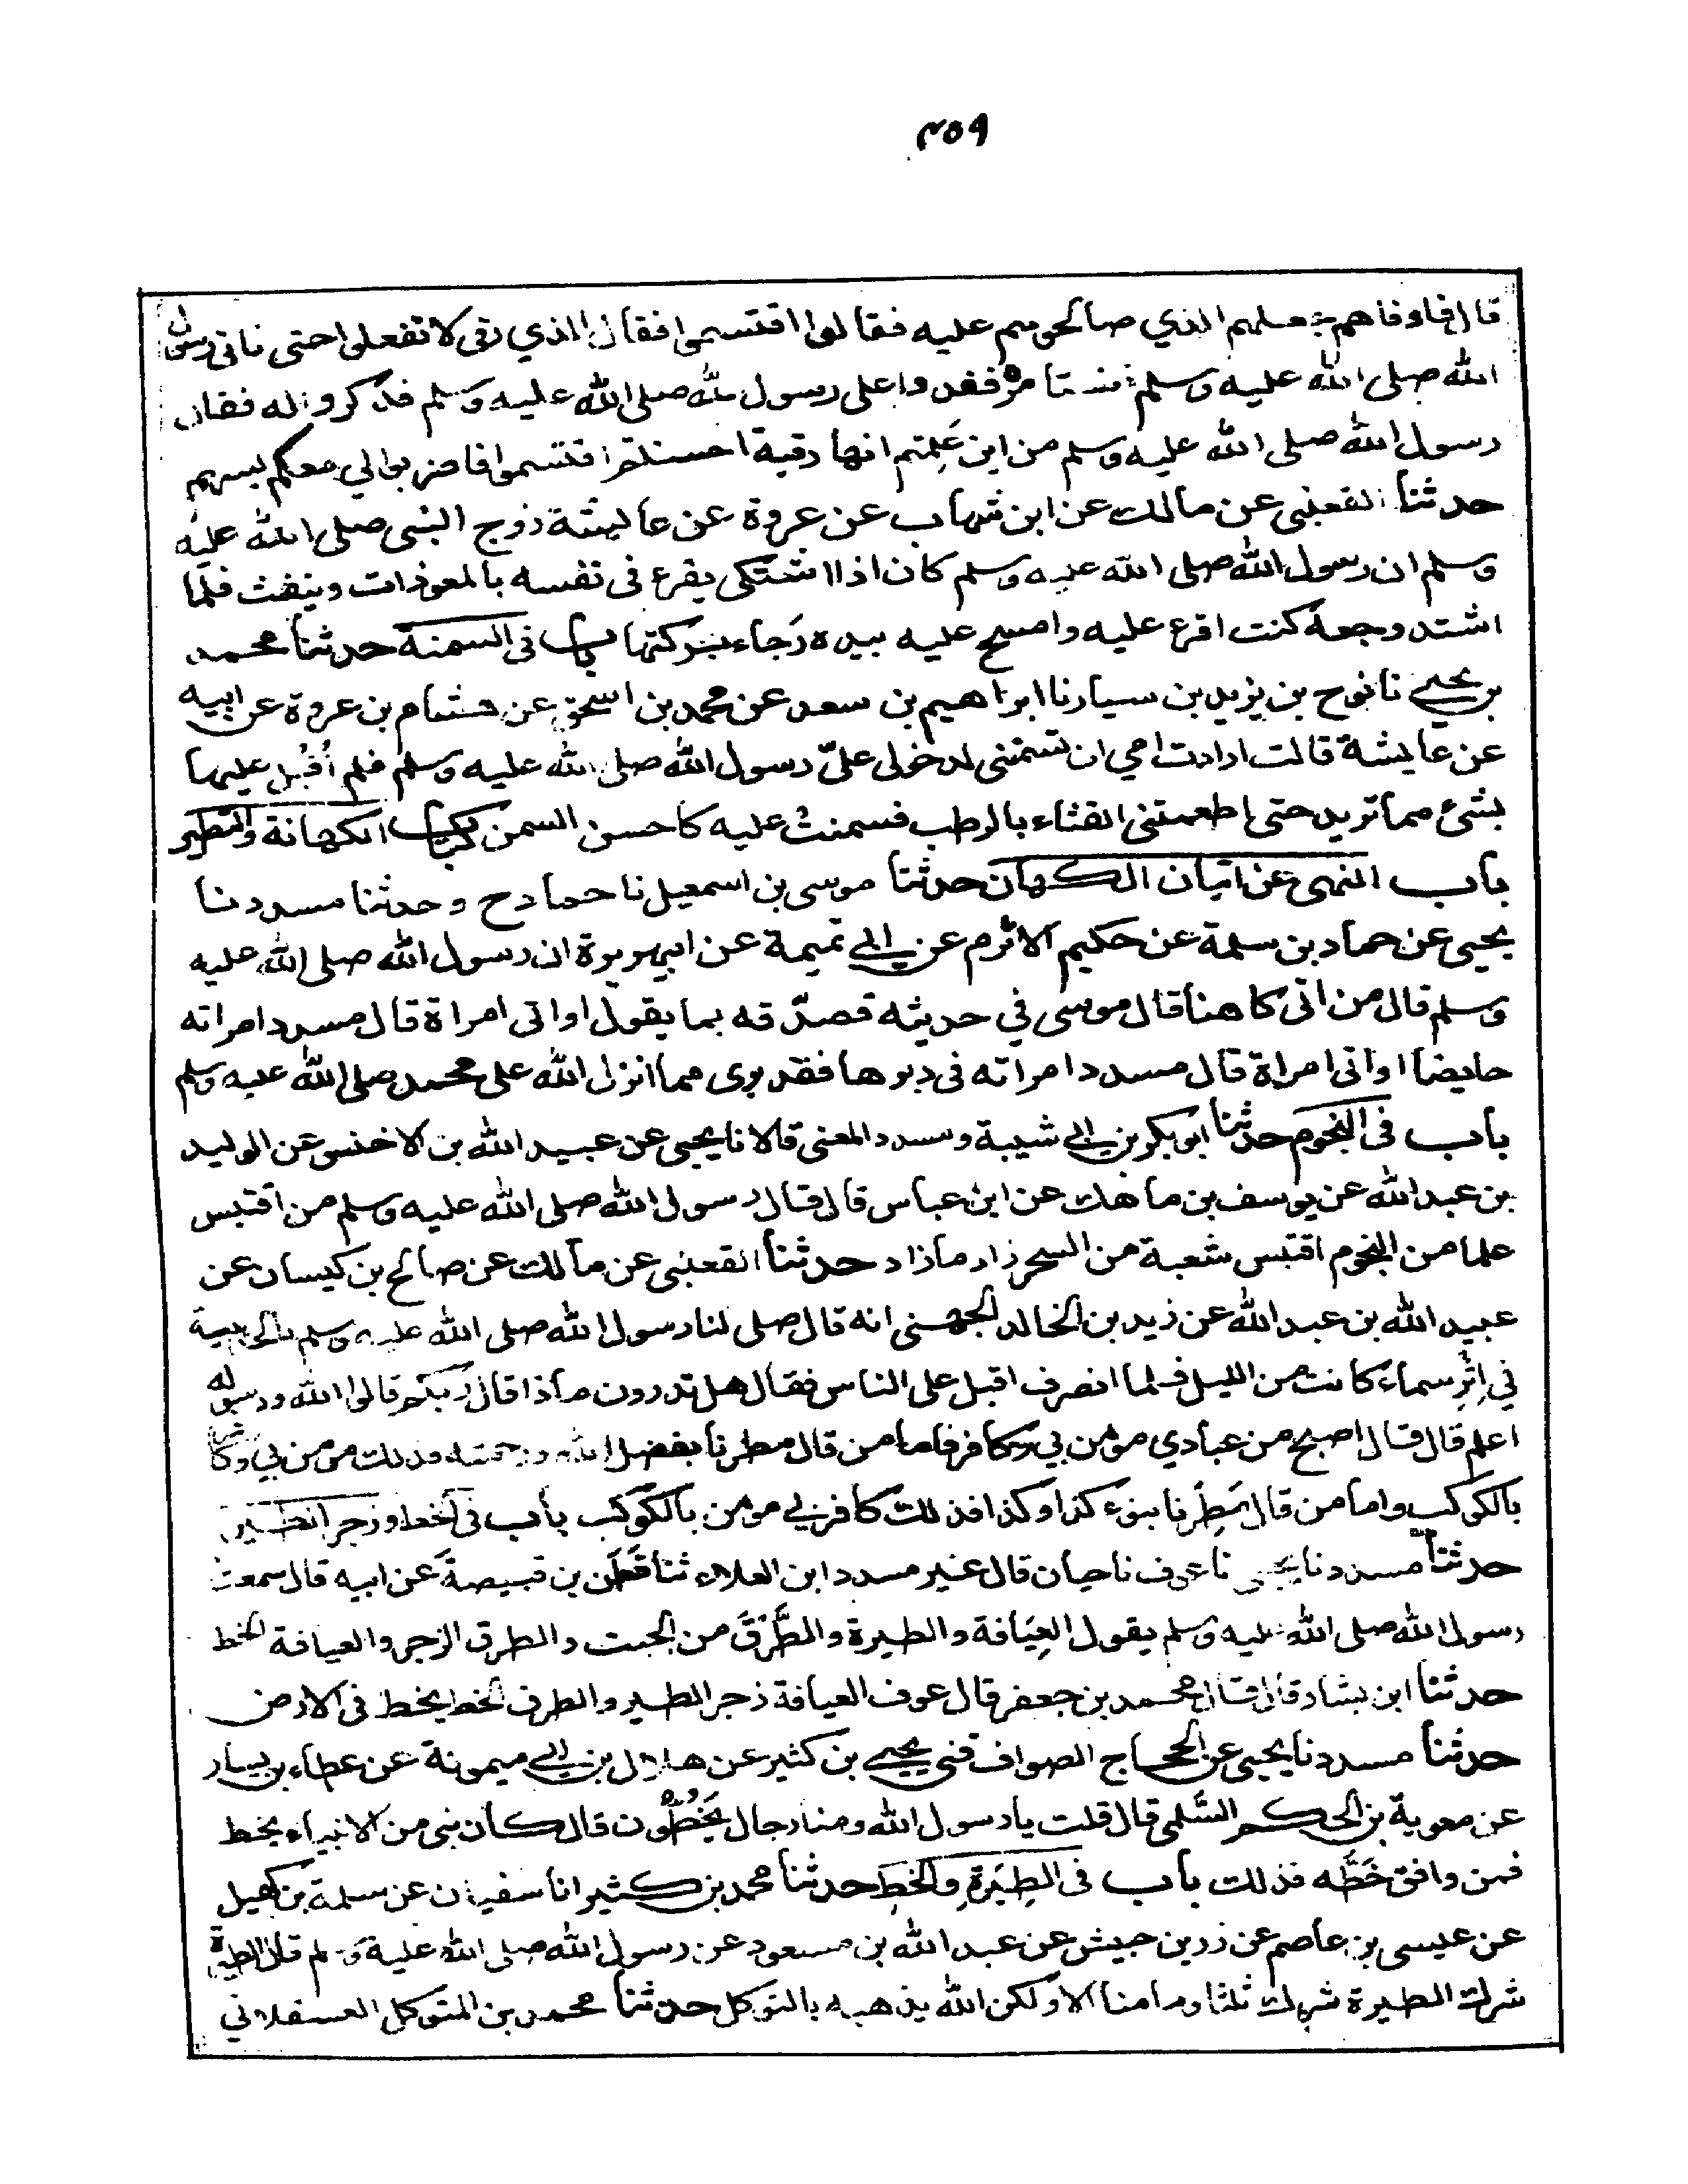 ٣٥٩
قال فاوفاهم جعلهم الذي صالحوهم عليه فقالوا اقتسموا فقال الذي رقى لا تفعلوا حتى ناتي رسول
الله صلى الله عليه وسلم فنستامره فغدوا على رسول الله صلى الله عليه وسلم فذكروا له فقال
رسول الله صلى الله عليه وسلم من اين علمتم انها رقية احسنتم اقتسموا فاضربوا لي معكم بسهم
حدثنا القعنبى عن مالك عن ابن شهاب عن عروة عن عايشة زوج النبى صلى الله عليه
وسلم ان رسول الله صلى الله عليه وسلم كان اذا اشتكى يقرء فى نفسه بالمعوذات وينفث فلما
اشتد وجعه كنت اقرء عليه وامسح عليه بيده رَجاء بركتها باب فى السمنة حدثنا محمد
بن يحيى نا نوح بن يزيد بن سيار نا ابراهيم بن سعد عن محمد بن اسحق عن هشام بن عروة عن ابيه
عن عايشة قالت ارادت امي ان تسمننى لدخولى علىّ رسول الله صلى الله عليه وسلم فلم اُقبُل عليها
بشئ مما تريد حتى اطعمتنى القثاء بالرطب فسمنت عليه كاحسن السمن كتاب الكهانة والتطير
باب النهى عن اتيان الكهان حدثنا موسى بن اسمعيل نا حماد ح وحدثنا مسدد نا
يحيى عن حماد بن سلمة عن حكيم الاثرم عن ابي تميمة عن ابي هريرة ان رسول الله صلى الله عليه
وسلم قال من اتى كاهنا قال موسى في حديثه فصدّقه بما يقول او اتى امراة قال مسدد امراته
حايضا او اتى امراة قال مسدد امراته فى دبرها فقد برى مما انزل الله على محمد صلى الله عليه وسلم
باب فى النجوم حدثنا ابو بكر بن ابي شيبة ومسدد المعنى قالا نا يحيى عن عبيد الله بن الاخنس عن الوليد
بن عبد الله عن يوسف بن ماهك عن ابن عباس قال قال رسول الله صلى الله عليه وسلم من اقتبس
علما من النجوم اقتبس شعبة من السحر زاد ما زاد حدثنا القعنبى عن مالك عن صالح بن كيسان عن
عبيد الله بن عبد الله عن زيد بن الخالد الجهنى انه قال صلى لنا رسول الله صلى الله عليه وسلم بالحديبية
في اِثْرِ سماء كانت من الليل فلما انصرف اقبل على الناس فقال هل تدرون ماذا قال ربكم قالوا الله ورسوله
اعلم قال قال اصبح من عبادي مومن بي وكافر فاما من قال مطرنا بفضل الله ورحمته فذلك مومن بي وكافر
بالكوكب واما من قال مُطِرنا بنوء كذا وكذا فذلك كافر بي مومن بالكوكب باب فى الخط وزجر الطير
حدثنا مسدد نا يحيى نا عوف نا حيان قال غير مسدد ابن العلاء ثنا قَطَن بن قبيصةَ عن ابيه قال سمعت
رسول الله صلى الله عليه وسلم يقول العِيَافة والطيرة والطَّرْق من الجبت والطرق الزجر والعيافة الخط
حدثنا ابن بشار قال قال محمد بن جعفر قال عوف العيافة زجر الطير والطرق الخط يخط فى الارض
حدثنا مسدد نا يحيى عن الحجاج الصواف ثنى يحيى بن كثير عن هلال بن ابي ميمونة عن عطاء بن يسار
عن معوية بن الحكم السُّلمى قال قلت يا رسول الله ومنا رجال يَخُطُّون قال كان نبى من الانبياء يخط
فمن وافق خَطَّه فذلك باب فى الطِيَرَةِ والخط حدثنا محمد بن كثير انا سفيان عن سلمة بن كهيل
عن عيسى بن عاصم عن زر بن حبيش عن عبد الله بن مسعود عن رسول الله صلى الله عليه وسلم قال الطيرة
شرك الطيرة شرك ثلثا وما منا الا ولكن الله يذهبه بالتوكل حدثنا محمد بن المتوكل العسقلاني